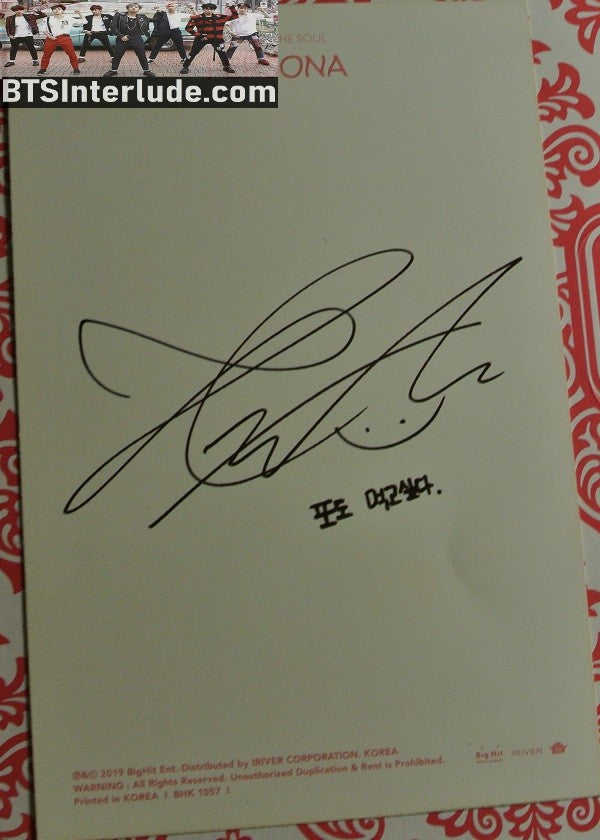 HE SOUL
ONA
BTSInterlude.com
포도 먹고싶다.
℗&© 2019 BigHit Ent. Distributed by IRIVER CORPORATION. KOREA
WARNING : All Rights Reserved. Unauthorized Duplication & Rent is Prohibited.
Printed in KOREA I BHK 1057 I
Big Hit IRIVER